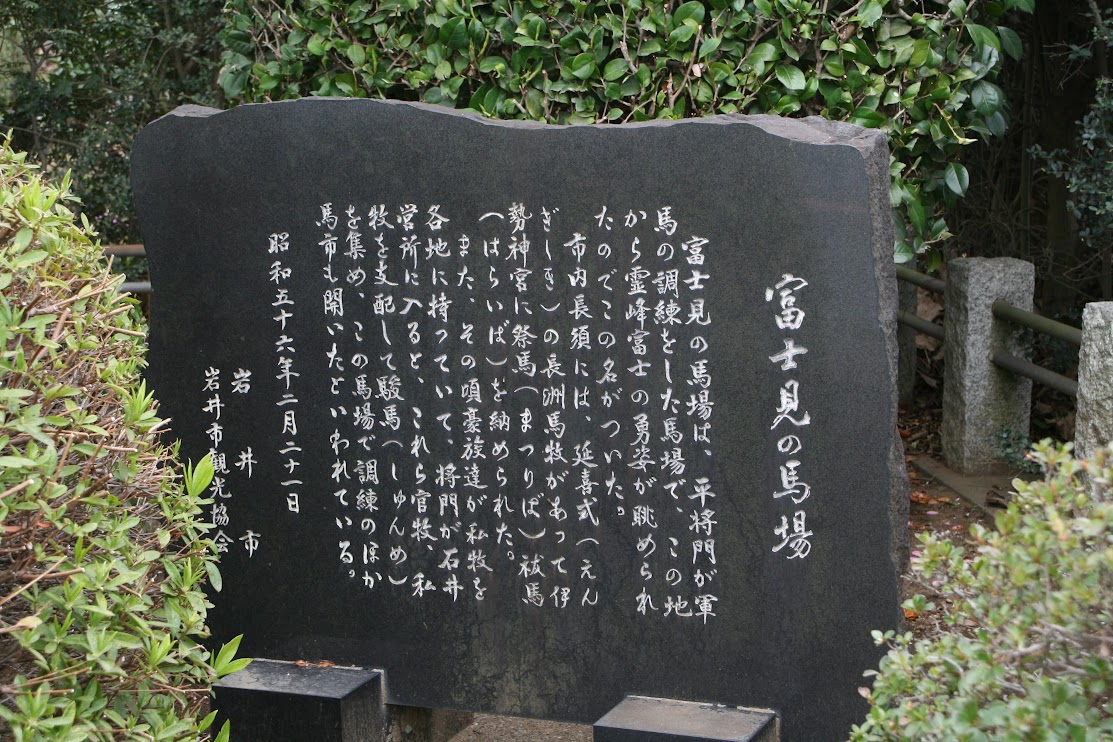 富士見の馬場
富士見の馬場は、平将門が軍
馬の調練をした馬場で、この地
から霊峰富士の勇姿が眺められ
たのでこの名がついた。
市内長須には、延喜式（えん
ぎしき）の長洲馬牧があって伊
勢神宮に祭馬（まつりば）祓馬
（はらいば）を納められた。
また、その頃豪族達が私牧を
各地に持っていて、将門が石井
営所に入ると、これら官牧、私
牧を支配して駿馬（しゅんめ）
を集め、この馬場で調練のほか
馬市も開いたといわれている。
昭和五十六年二月二十一日
岩井市
岩井市観光協会